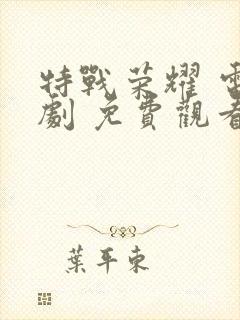 特戰荣耀 電
劇 免費觀看
葉平東